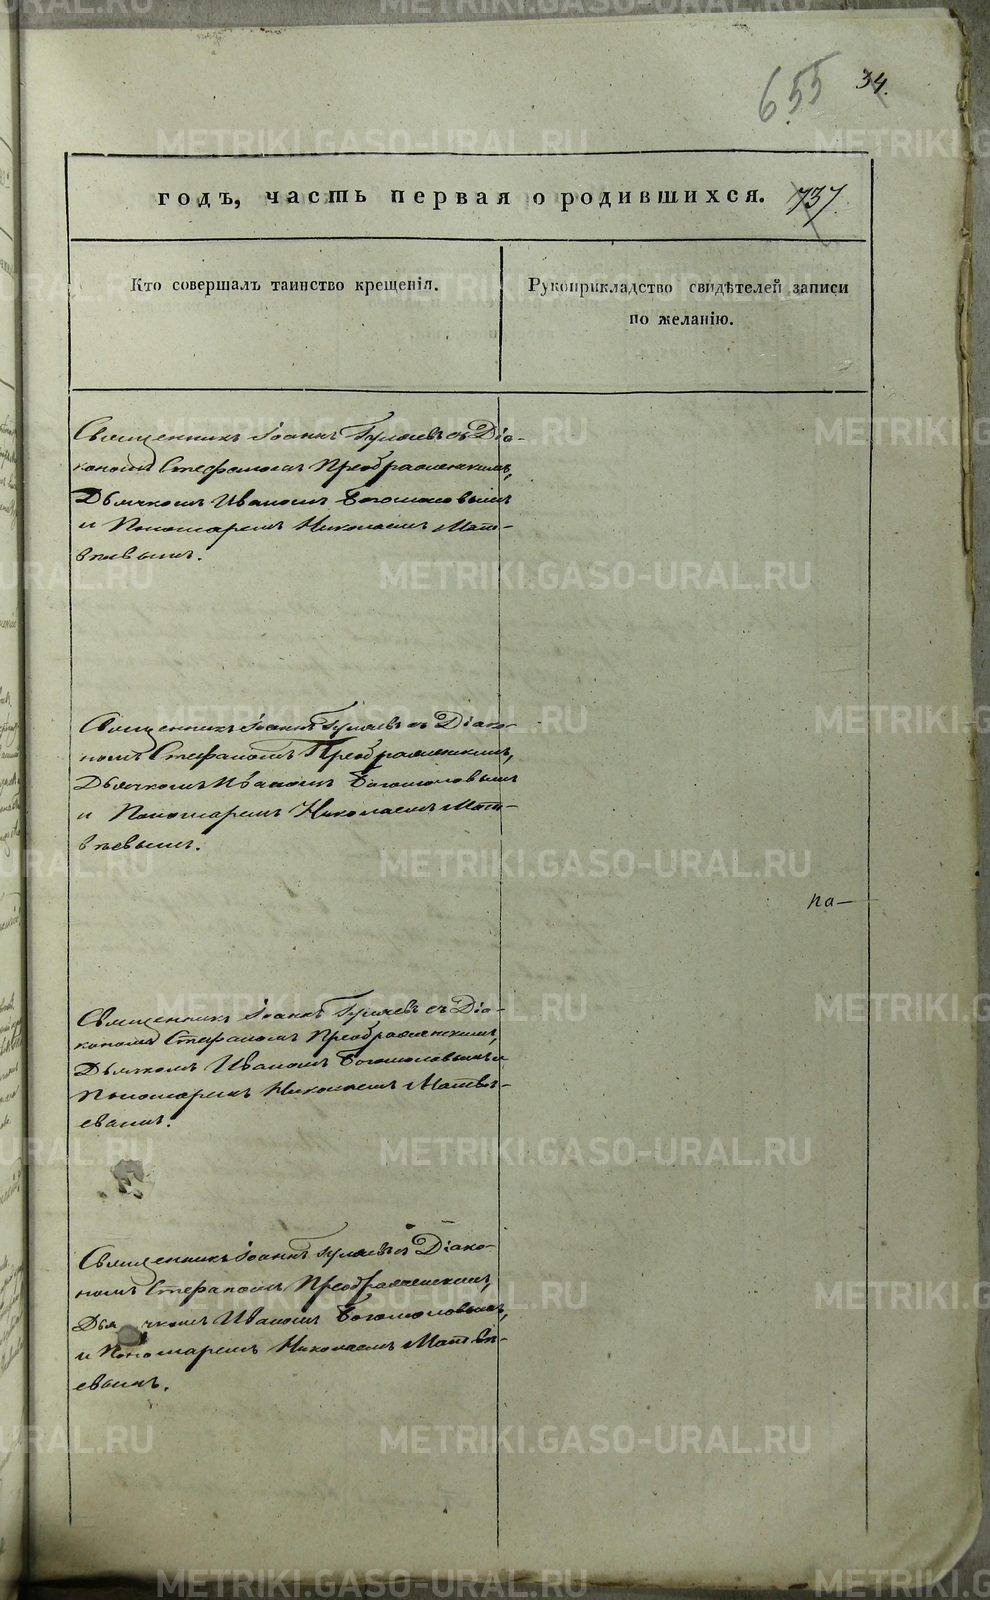 655 34.
годъ, часть первая о родившихся. 737.
Кто совершалъ таинство крещенія.
Рукоприкладство свидѣтелей записи
по желанію.
Священникъ Іоаннъ Гуляевъ съ Діа-
кономъ Стефаномъ Преображенскимъ,
Дьячкомъ Иваномъ Богомоловымъ
и Пономаремъ Николаемъ Мат-
вѣевымъ.
Священникъ Іоаннъ Гуляевъ съ Діако-
номъ Стефаномъ Преображенскимъ,
Дьячкомъ Иваномъ Богомоловымъ
и Пономаремъ Николаемъ Мат-
вѣевымъ.
па—
Священникъ Іоаннъ Гуляевъ съ Діа-
кономъ Стефаномъ Преображенскимъ,
Дьячкомъ Иваномъ Богомоловымъ и
Пономаремъ Николаемъ Матвѣ-
евымъ.
Священникъ Іоаннъ Гуляевъ съ Діако-
номъ Стефаномъ Преображенскимъ,
Дьячкомъ Иваномъ Богомоловымъ,
и Пономаремъ Николаемъ Матвѣ-
евымъ.
METRIKI.GASO-URAL.RU